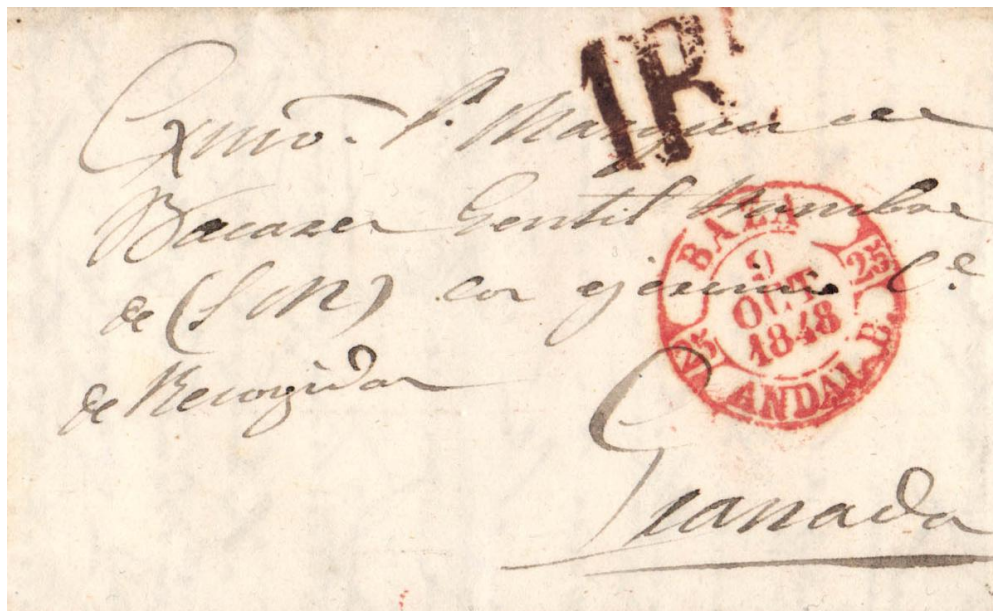 1R
Exmo. Sr. Marques de
Bacares Gentil Hombre
de (S M) con ejercicio C.e
de Recogidas
Granada
BAZA
9
OCT
1848
25
25
ANDAL. B.